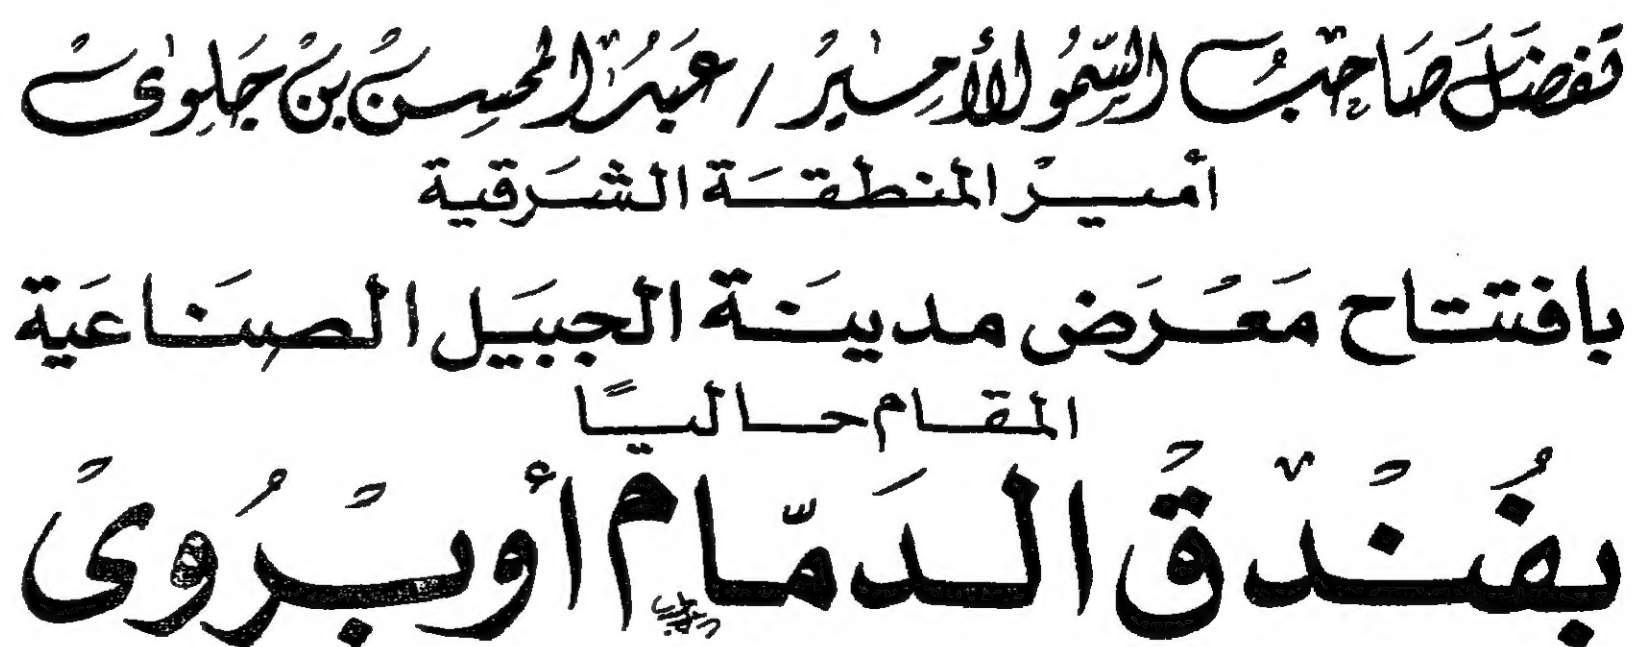 تفضل صاحب السمو الأمير / عبد المحسن بن جلوى
أمير المنطقة الشرقية
بافتتاح معرض مدينة الجبيل الصناعية
المقام حاليًا
بفندق الدمّام أوبروى